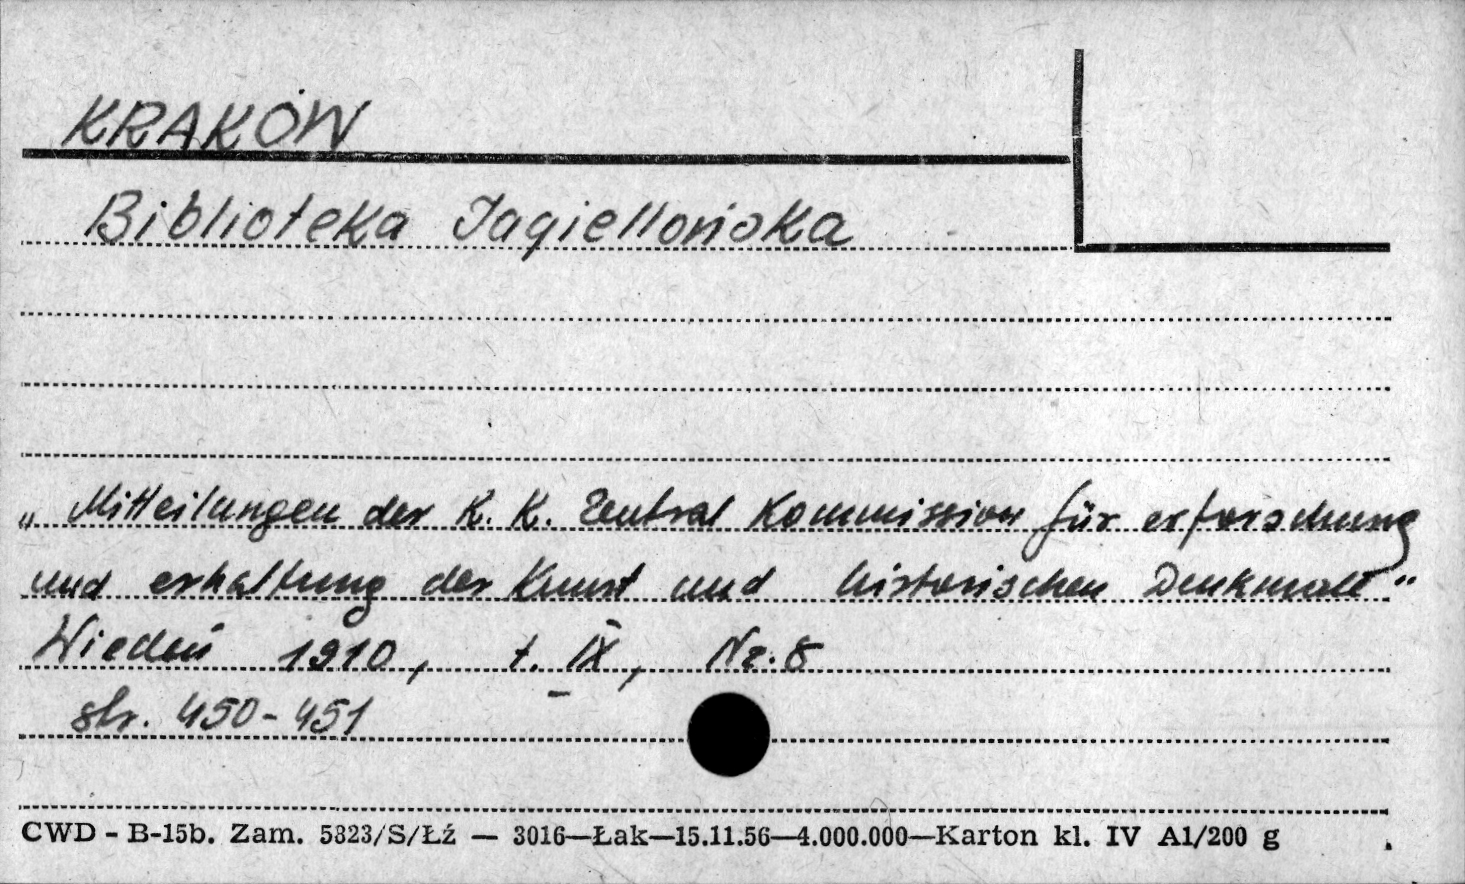 KRAKÓW
Biblioteka Jagiellońska
„Mitteilungen der K. K. Zentral Kommission für erforschung
und erhaltung der Kunst und historischen Denkmale"
Wiedeń 1910, t. IX, Nr. 8
str. 450-451
CWD - B-15b. Zam. 5323/S/Łź — 3016—Łak—15.11.56—4.000.000—Karton kl. IV A1/200 g